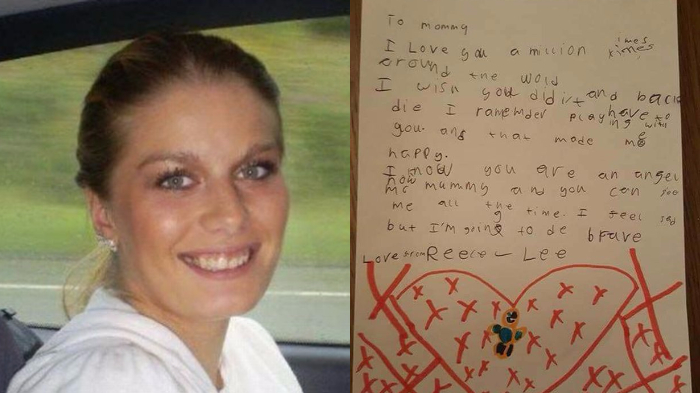 To mommy
I Love you a million imes ximes
around the world
I wish you did,t and back
die I ramemder playing have to
you. and that made me with
happy.
I know you are an angel
now
mc mummy and you can see
me all the time. I feel sad
but I'm going to de brave
Love from Reece - Lee